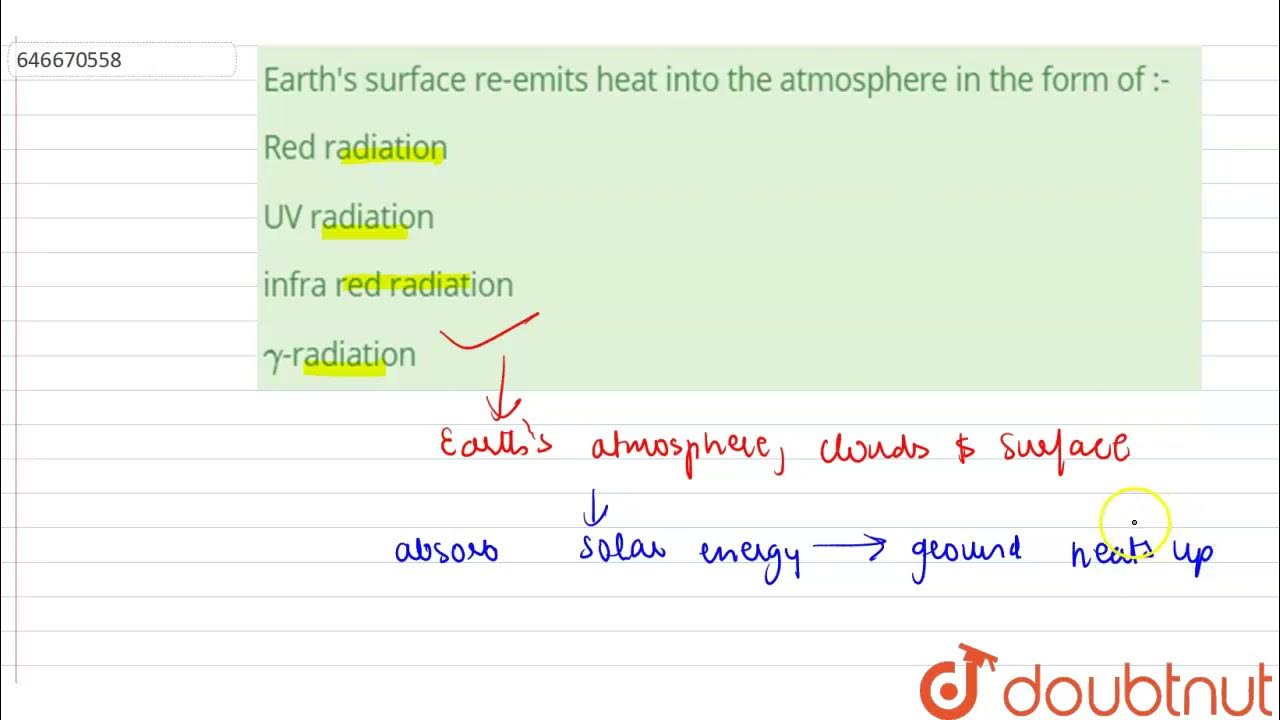 646670558
Earth's surface re-emits heat into the atmosphere in the form of :-
Red radiation
UV radiation
infra red radiation
γ-radiation
Earth's atmosphere, clouds & surface
absorb solar energy → ground heats up
doubtnut